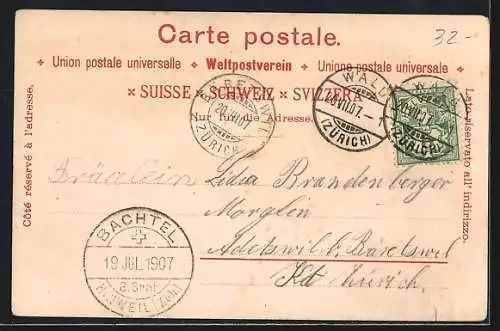 Carte postale.
32-
* Union postale universelle * Weltpostverein * Unione postale universale *
* SUISSE * SCHWEIZ * SVIZZERA *
Nur für die Adresse.
Côté réservé à l'adresse.
Lato riservato all' indirizzo.
20.VII.07
(ZÜRICH)
WALD
20.VII.07.-7
(ZÜRICH)
WALD
20.VII.07
(ZÜRICH)
Fräulein Lidia Brandenberger
Morglin
Adetswil b. Baretswil
Kt Zürich.
BACHTEL
19 JUL 1907